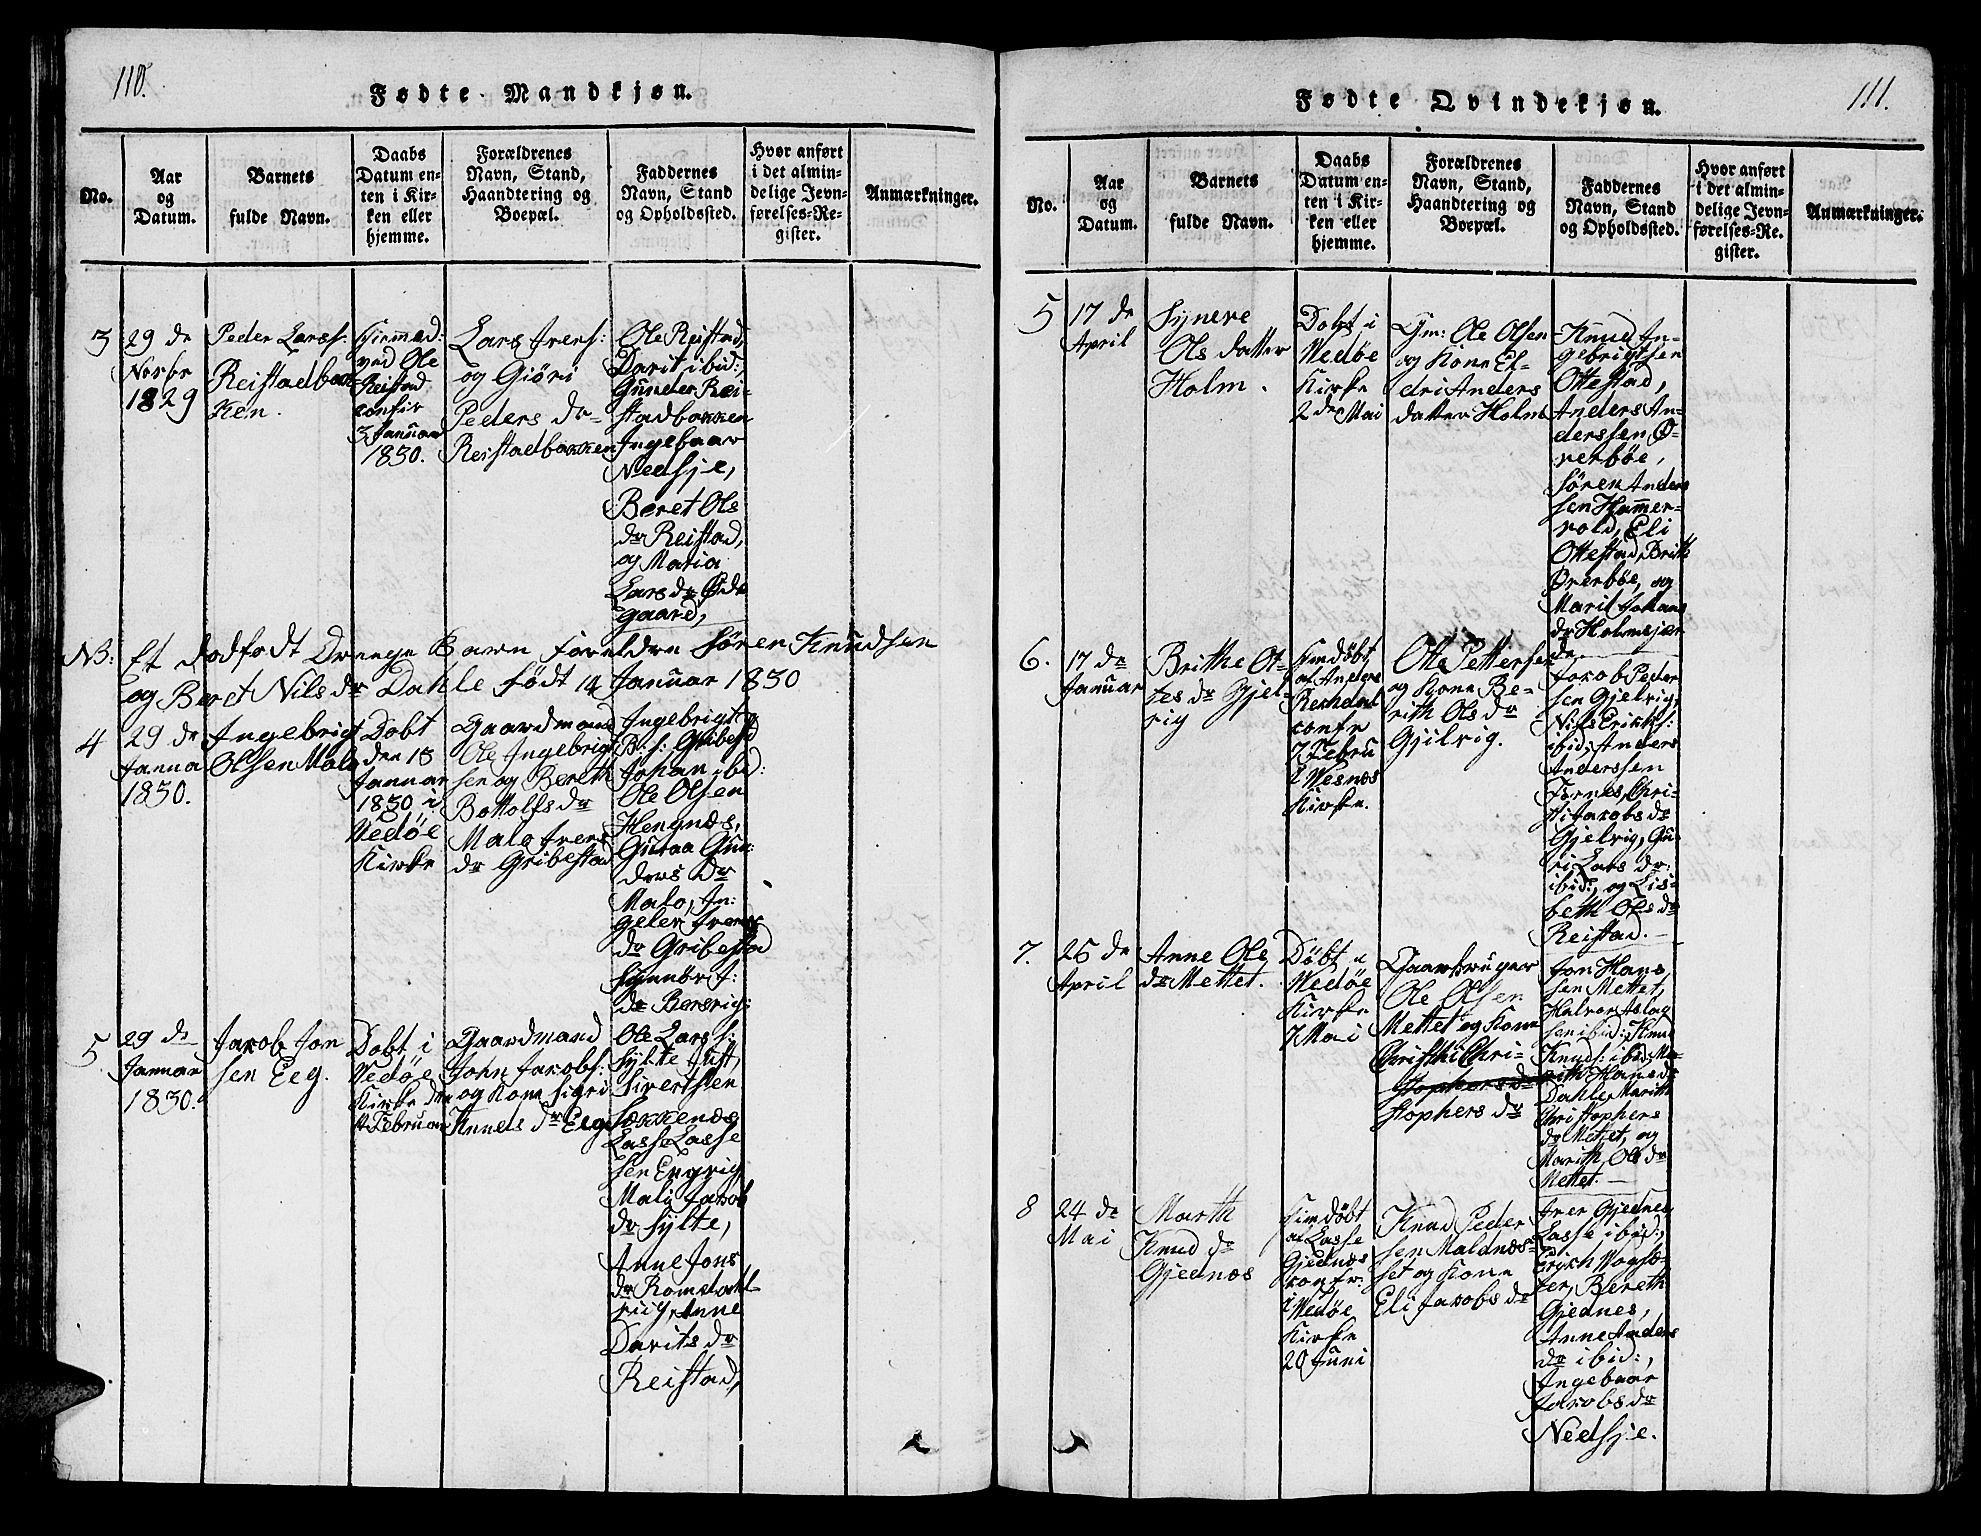 110.
Fødte Mandkjøn.
No.
Aar
og
Datum.
Barnets
fulde Navn.
Daabs
Datum en-
ten i Kir-
ken eller
hjemme.
Forældrenes
Navn, Stand,
Haandtering og
Boepæl.
Faddernes
Navn, Stand
og Opholdssted.
Hvor anført
i det almin-
delige Jevn-
førelses-Re-
gister.
Anmærkninger.
3
29 de
Novbr
1829
Peder Larss:
Reistadbak
ken.
Hjemmed:
ved Ole
Reistad
confir
3 Januar
1830.
Lars Ivers:
og Giöri
Peders dr
Reistadbakken
Ole Reistad,
Darit ibid:,
Gunder Rei-
stadbakken
Ingebaar
Nedsje,
Beret Ols
dr Reistad,
og Maria
Lars dr Øde
gaard,
NB: Et dödfödt Drenge Barn Foreldre Sören Knudsen
og Beret Nils dr Dahle födt 14 Januar 1830
4
29 de
Janua
1830.
Ingebrigt
Olsen Malo
Dobt
den 18
Januar
1830 i
Vedöe
Kirke
Gaardmand
Ole Ingebrigt
sen og Bereth
Bottolfs dr
Malo Ivers
dr Gribestad
Ingebrigt
Gribestad
Johan ibid:
Ole Olsen
Hengnæs,
Guraa Gun:
ders dr
Malo, In:
geler Ivers
dr Gribestad
Synnör J:
dr Bersvig:
5.
29 de
Januar
1830.
Jakob Jon
sen Eeg.
Dobt i
Vedöe
Kirke den
Februar
Gaardmand
John Jacobs:
og Kone Sigri
Knuds dr Eeg
Ole Larss:
Sylte Just,
Sivertsen
Sækkenæs
Lasse Lasse
sen Engvig
Mali Jakob
dr Sylte,
Anne Jons
dr Romsdahl
Anne
Darits dr
Reistad,
111.
Fødte Qvindekjøn.
No.
Aar
og
Datum.
Barnets
fulde Navn.
Daabs
Datum en-
ten i Kir-
ken eller
hjemme.
Forældrenes
Navn, Stand,
Haandtering og
Boepæl.
Faddernes
Navn, Stand
og Opholdssted.
Hvor anført
i det almin-
delige Jevn-
førelses-Re-
gister.
Anmærkninger.
5
17 de
April
Synere
Ols datter
Holm.
Dobt i
Vedöe
Kirke
2 de Mai
Gm: Ole Olsen
og Kone El-
dri Anders
datter Holm
Knud In-
gebrigtsen
Ottestad,
Anders An-
derssen Ø-
verböe,
Sören Anders
sen Hammer-
vold, Eli
Ottestad, Brith
Øverböe, og
Marit Johans
dr Holmsjær
de
6.
17 de
Januar
Brithe Ol-
les dr Gjel-
vig
Hjmdöbt
af Anders
confr
7 Febru
i Vesnæs
Kirke.
Ole Pettersen
og Kone Be-
rith Ols dr
Gjilvig.
Jacob Peder
sen Gjelvig,
Nils Eriks:
ibid: Anders
Anderssen
Tornes, Chri-
sti Jacobs dr
Gjelvig, Gu-
ri Lars dr:
ibid:, og Lis-
beth Ols dr
Reistad.
7.
25 de
April
Anne Ole
dr Mettet.
Döbt i
Vedöe
Kirke
7 Mai
Gaardbruger
Ole Olsen
Mettet og Kone
Christhi Chri-
stophers dr
stophers dr
Jon Hans
sen Mettet,
Halvor Aslag
sen ibid: Knud
Knuds: ibid: Ma-
rith Hans dr
Dahle, Marith
Christophers
dr Mettet, og
Marith Ols dr
Mettet.
8
24 de
Mai
Marth
Knud dr
Gjednæs
Himdöbt
af Lasse
Gjednæs
confr:
i Vedöe
Kirke
20 Juni
Knud Peder
sen Maldnæs-
set og Kone
Eli Jacobs dr
Iver Gjednes,
Lasse ibid:,
Erich Vagsö-
ter, Bereth
Gjednes,
Anne Anders
dr ibid:,
Ingebaar
Jakobs dr
Nedsje.